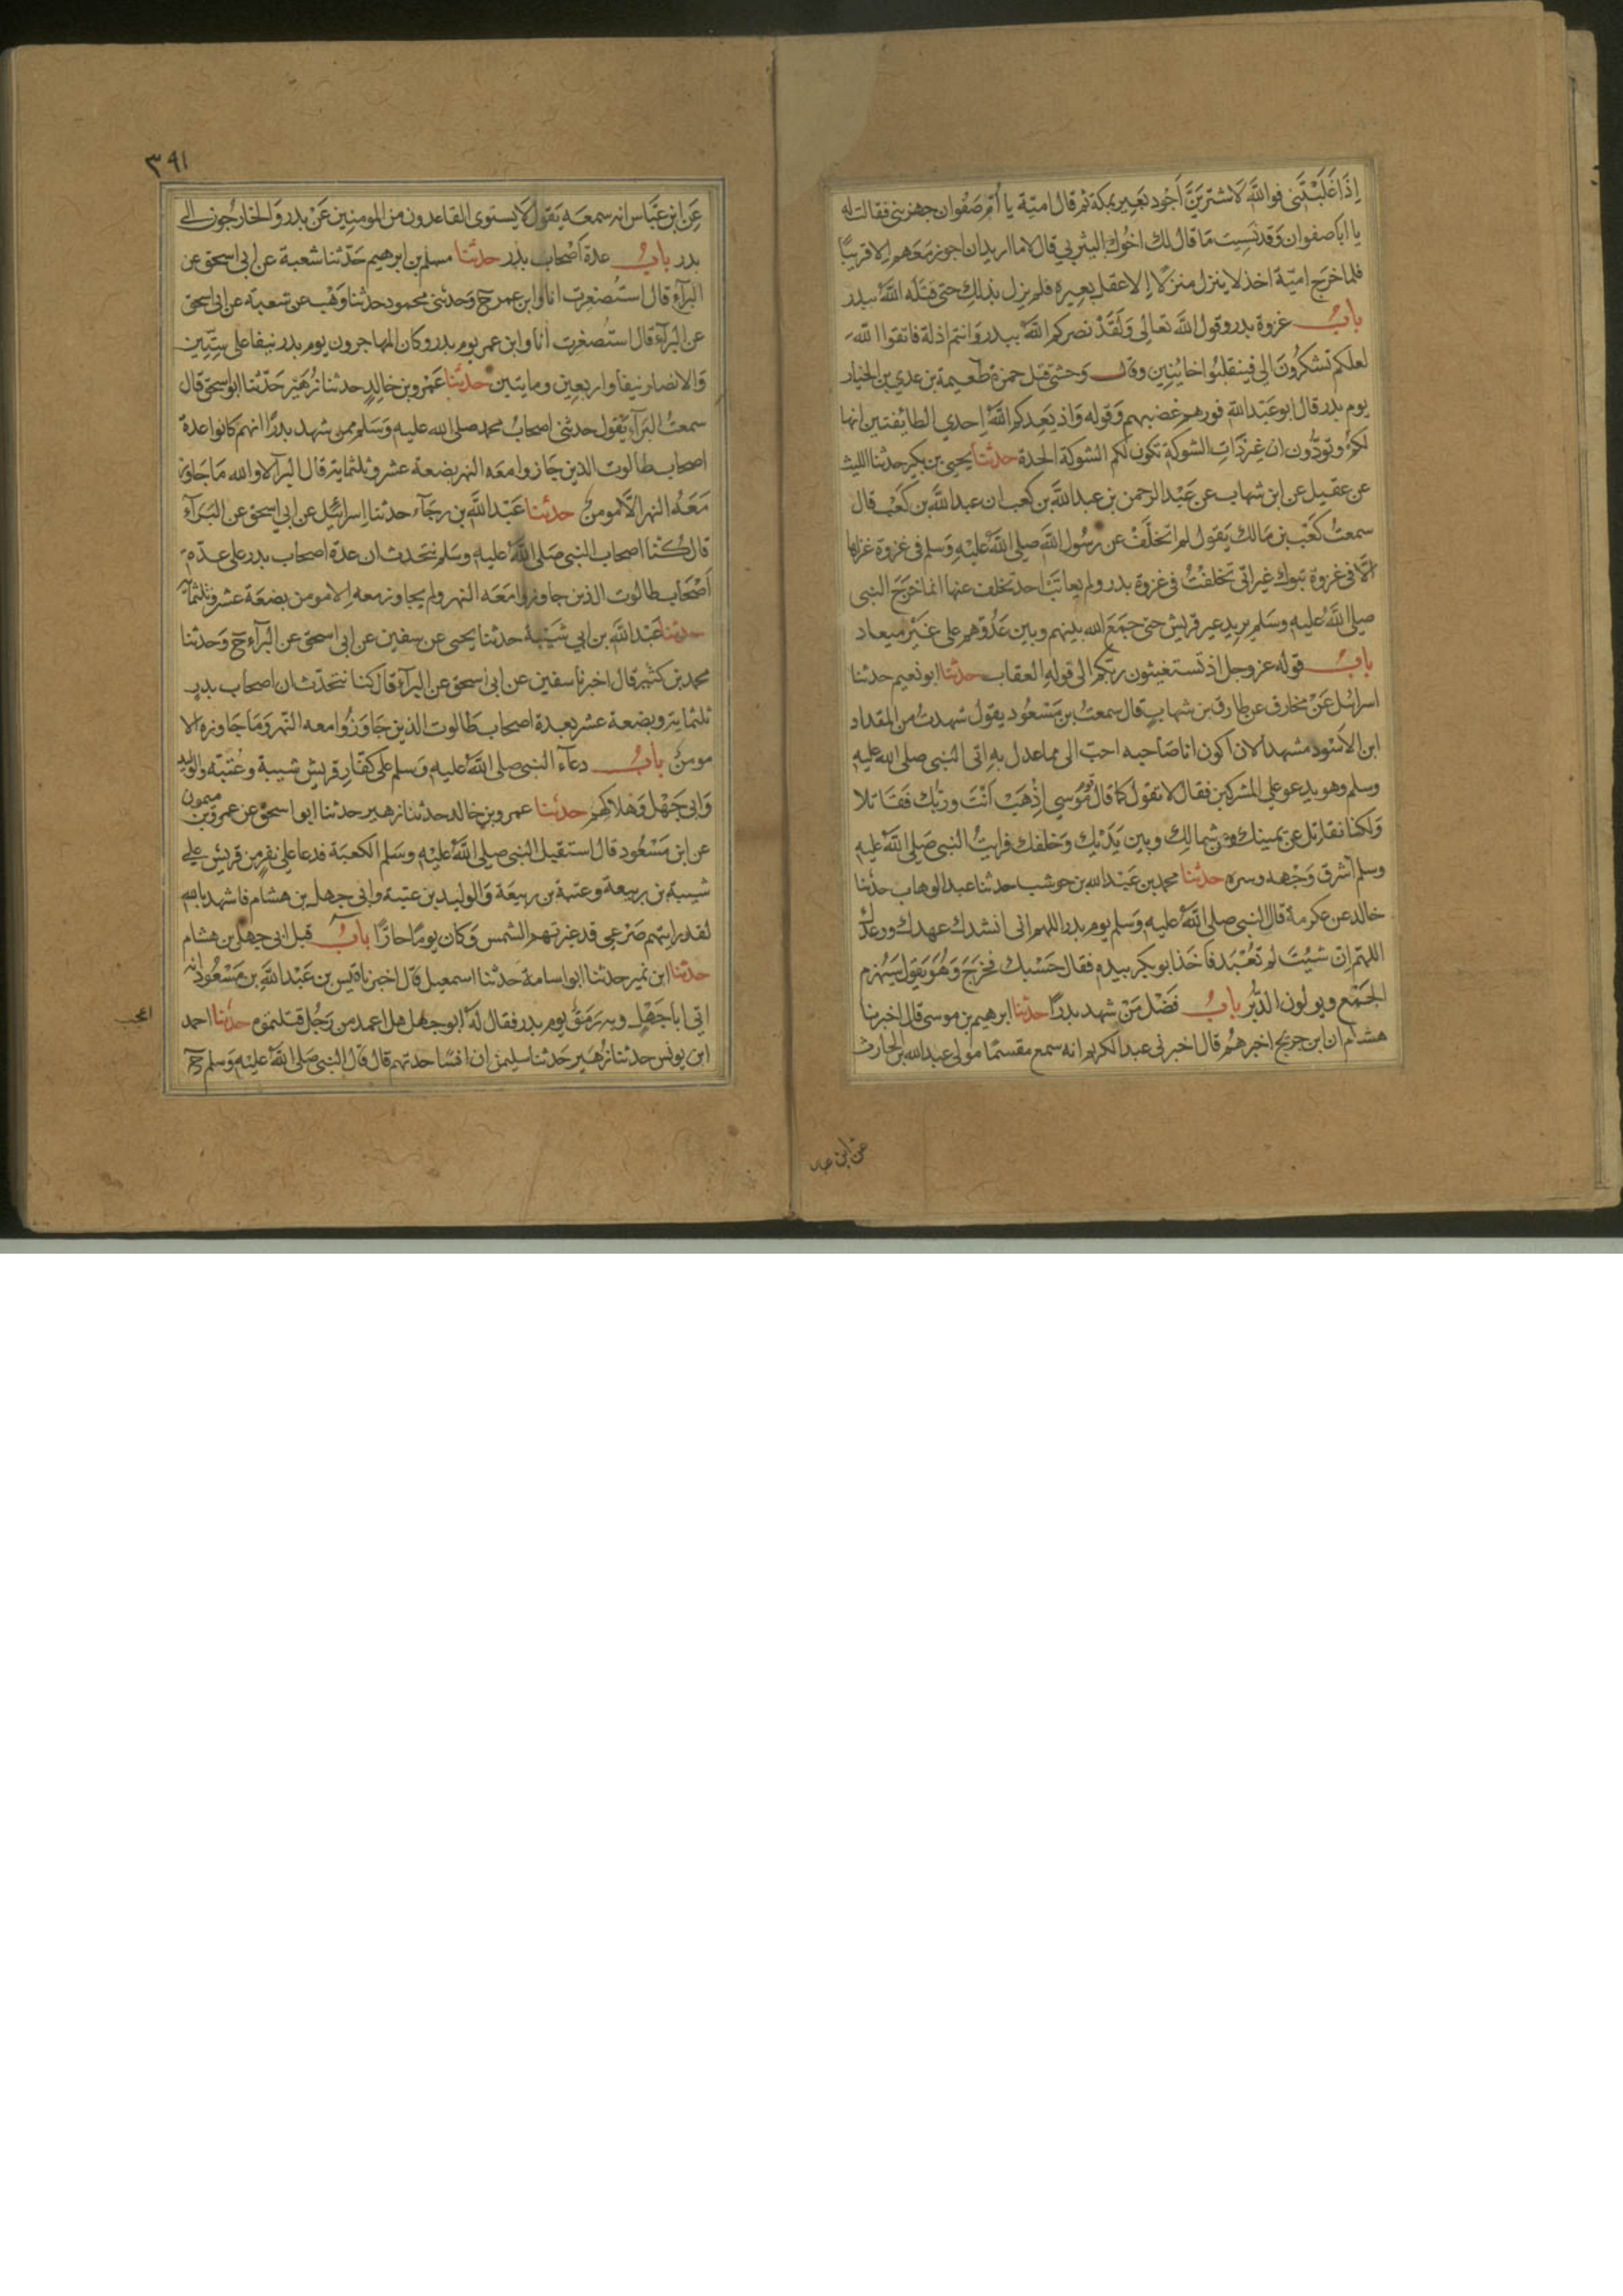 اِذَا غَلَبْتَنِى فوالله لَاشترِيَنَّ اَجْوَد بَعِير بمكة ثم قال اميّة يا اُمّ صَفْوان جهزينى فقالت له
يا ابا صفوان وَقد نَسِيتَ مَا قال لك اخُوك اليثربي قال لا ما اريد ان اجوز مَعَهم الا قريبًا
فلما خرَج اميّة اخذ لا ينزل منزلًا الا عقل بعِيره فلم يزل بذلِك حتى قتَلَه الله ببدر
بابُ غزوة بدر وقول الله تعالى وَلَقَدْ نصركم الله ببدر وَانتم اذلة فاتقوا الله
لعلكم تشكرُونَ الى فينقلبُوا خائبِين وقال وَحشى قتل حمزة طعيمة بن عدي بن الخيار
يوم بدر قال ابو عَبْد الله فورهم غضبهم وَقوله وَاذ يَعِدكم الله اِحدي الطائفتين انها
لكم وتَوَدُّون ان غير ذاتِ الشوكة تكون لكم الشوكة الحدة حدثنا يحيى بن بكير حدثنا الليث
عن عقيل عن ابن شهاب عن عَبْد الرحمن بن عبد الله بن كعب ان عبد الله بن كَعْب قال
سمعتُ كَعْبَ بن مَالك يَقول لم اتخلَّفْ عن رسُول الله صلى الله عليْهِ وَسلم فى غزوة غزاها
الا فى غزوة تبوك غير انّى تخلفتُ فى غزوة بدر ولم يعاتَبْ احد تخلف عنها انما خرَجَ النبى
صلى الله عليه وسَلم يريد عير قريش حتى جمَعَ الله بينهم وبين عَدُوّهم على غيْر ميعاد
بابُ قوله عز وجل اذ تستغيثون ربّكم الى قولِهِ العقاب حدثنا ابو نعيم حدثنا
اسرائيل عَنْ مخارق عن طارق بن شهابٍ قال سمعتُ بن مَسْعُود يقول شهدتُ من المقداد
ابن الاَسْود مشهدا لان اكون انا صَاحبه احبّ الى مما عدل بهِ اتى النبى صلى الله عليه
وسلم وهو يدعو على المشركين فقال لا نقول كما قال قوم مُوسي اِذْهَبْ اَنْتَ وربّك فَقَاتلا
وَلكنا نقاتل عن يمينك وعن شمالِك وبين يَدَيْك وَخلفك فرايتُ النبى صَلى الله عليه
وسلم اشرق وَجْهه وسره حدّثنا محمد بن عَبْد الله بن حوشب حدثنا عبد الوهاب حدثنا
خالد عن عكرمة قال النبى صلى الله عليه وَسلم يوم بدر اللهم انى انشدك عهدك ووعدك
اللهمّ ان شئتَ لم تُعْبَد فاخَذ ابو بكر بيده فقال حَسْبك فخرَجَ وَهُوَ يَقول سَيُهزم
الجَمْع ويولون الدُّبُر بابُ فَضْل مَنْ شهد بدرًا حدثنا ابرهيم بن موسى قال اخبرنا
هشام ان ابن جريج اخبرهُم قال اخبرنى عبد الكريم انه سمع مقسمًا مولى عبد الله بن الحارث
عن ابن عبا
٣٩١
عَن ابن عَبّاس انه سمعَه يَقول لا يستوى القاعدون من المومنِين عَنْ بدر وَالخارجُون الى
بدر بابُ عدة اَصْحاب بدر حدثنا مسلم بن ابرهيم حَدّثنا شعبة عن ابى اسحق عن
البرآء قال استُصْغِرت انا وابن عمر ح وَحدثنى محمود حدثنا وَهْب عن شعبة عن ابى اسحق
عن البرآء قال استُصغِرت انا وابن عمر يوم بدر وكان المهاجرون يوم بدر نيفا على ستّين
وَالانصار نيفا واربعِين ومايتين حدثنا عَمْرو بن خالدٍ حدثنا زُهَيْر حَدّثنا ابو اسحق قال
سمعتُ البَرآء يَقول حدثنى اصحابُ محمد صلى الله عليه وَسَلم ممن شهد بدرًا انهم كانوا عدة
اصحاب طالوت الذين جَازوا معَه النهر بضعة عشر وثلثماية قال البرآ لا والله مَا جَاوز
مَعَهُ النهر اِلّا مومن حدثنا عَبْد الله بن رجآء حدثنا اسرائيل عن ابي اسحق عن البَرآء
قال كُنا اصحاب النبى صَلى الله عليه وسَلم نتحدث ان عدة اصحاب بدر على عدّة
اَصْحَاب طالوت الذين جاوزوا مَعَه النهر ولم يجاوز معه اِلا مومن بضعَة عشر وثلثماية
حدثنا عَبْد الله بن ابي شَيْبة حدثنا يحيى عن سفين عن ابى اسحق عن البرآء ح وَحدثنا
محمد بن كثير قال اخبرنا سفين عن ابى اسحق عن البرآء قال كنا نتحدّث ان اصحاب بدر
ثلثماية وبضعة عشر بعدة اصحاب طَالوت الذين جَاوَزُوا معه النّهر وَمَا جَاوزه الا
مومن بابُ دعآء النبى صلى الله عليه وَسلم على كفّارِ قريش شيبة وعُتبَة والوليد
وَابى جَهْل وَهلاكهم حدثنا عمرو بن خالد حدثنا زهير حدثنا ابو اسحق عن عمرو بن ميمون
عن ابن مَسْعُود قال استقبل النبى صلى الله عليه وسَلم الكعبَة فدعا على نفرٍ من قريش على
شيبة بن ربيعة وعتبة بن ربيعَة وَالوليد بن عتبة وابى جهل بن هشام فاشهد بالله
لقد رايتهم صَرْعى قد غيرتهم الشمس وَكان يومًا حارًّا بابُ قتل ابى جهل بن هشام
حدثنا ابن نمير حدثنا ابو اسامة حَدثنا اسمعيل قال اخبرنا قيس بن عَبْد الله بن مَسْعُود انه
اتى ابا جَهْل وبه رَمَقٌ يوم بدر فقال له ابو جهل هل اعمد من رَجُل قتلتموه حدثنا احمد
ابن يونس حدثنا زُهَير حَدثنا سليمن ان انسًا حدثهم قال قال النبى صَلى الله عليْه وَسلم ح